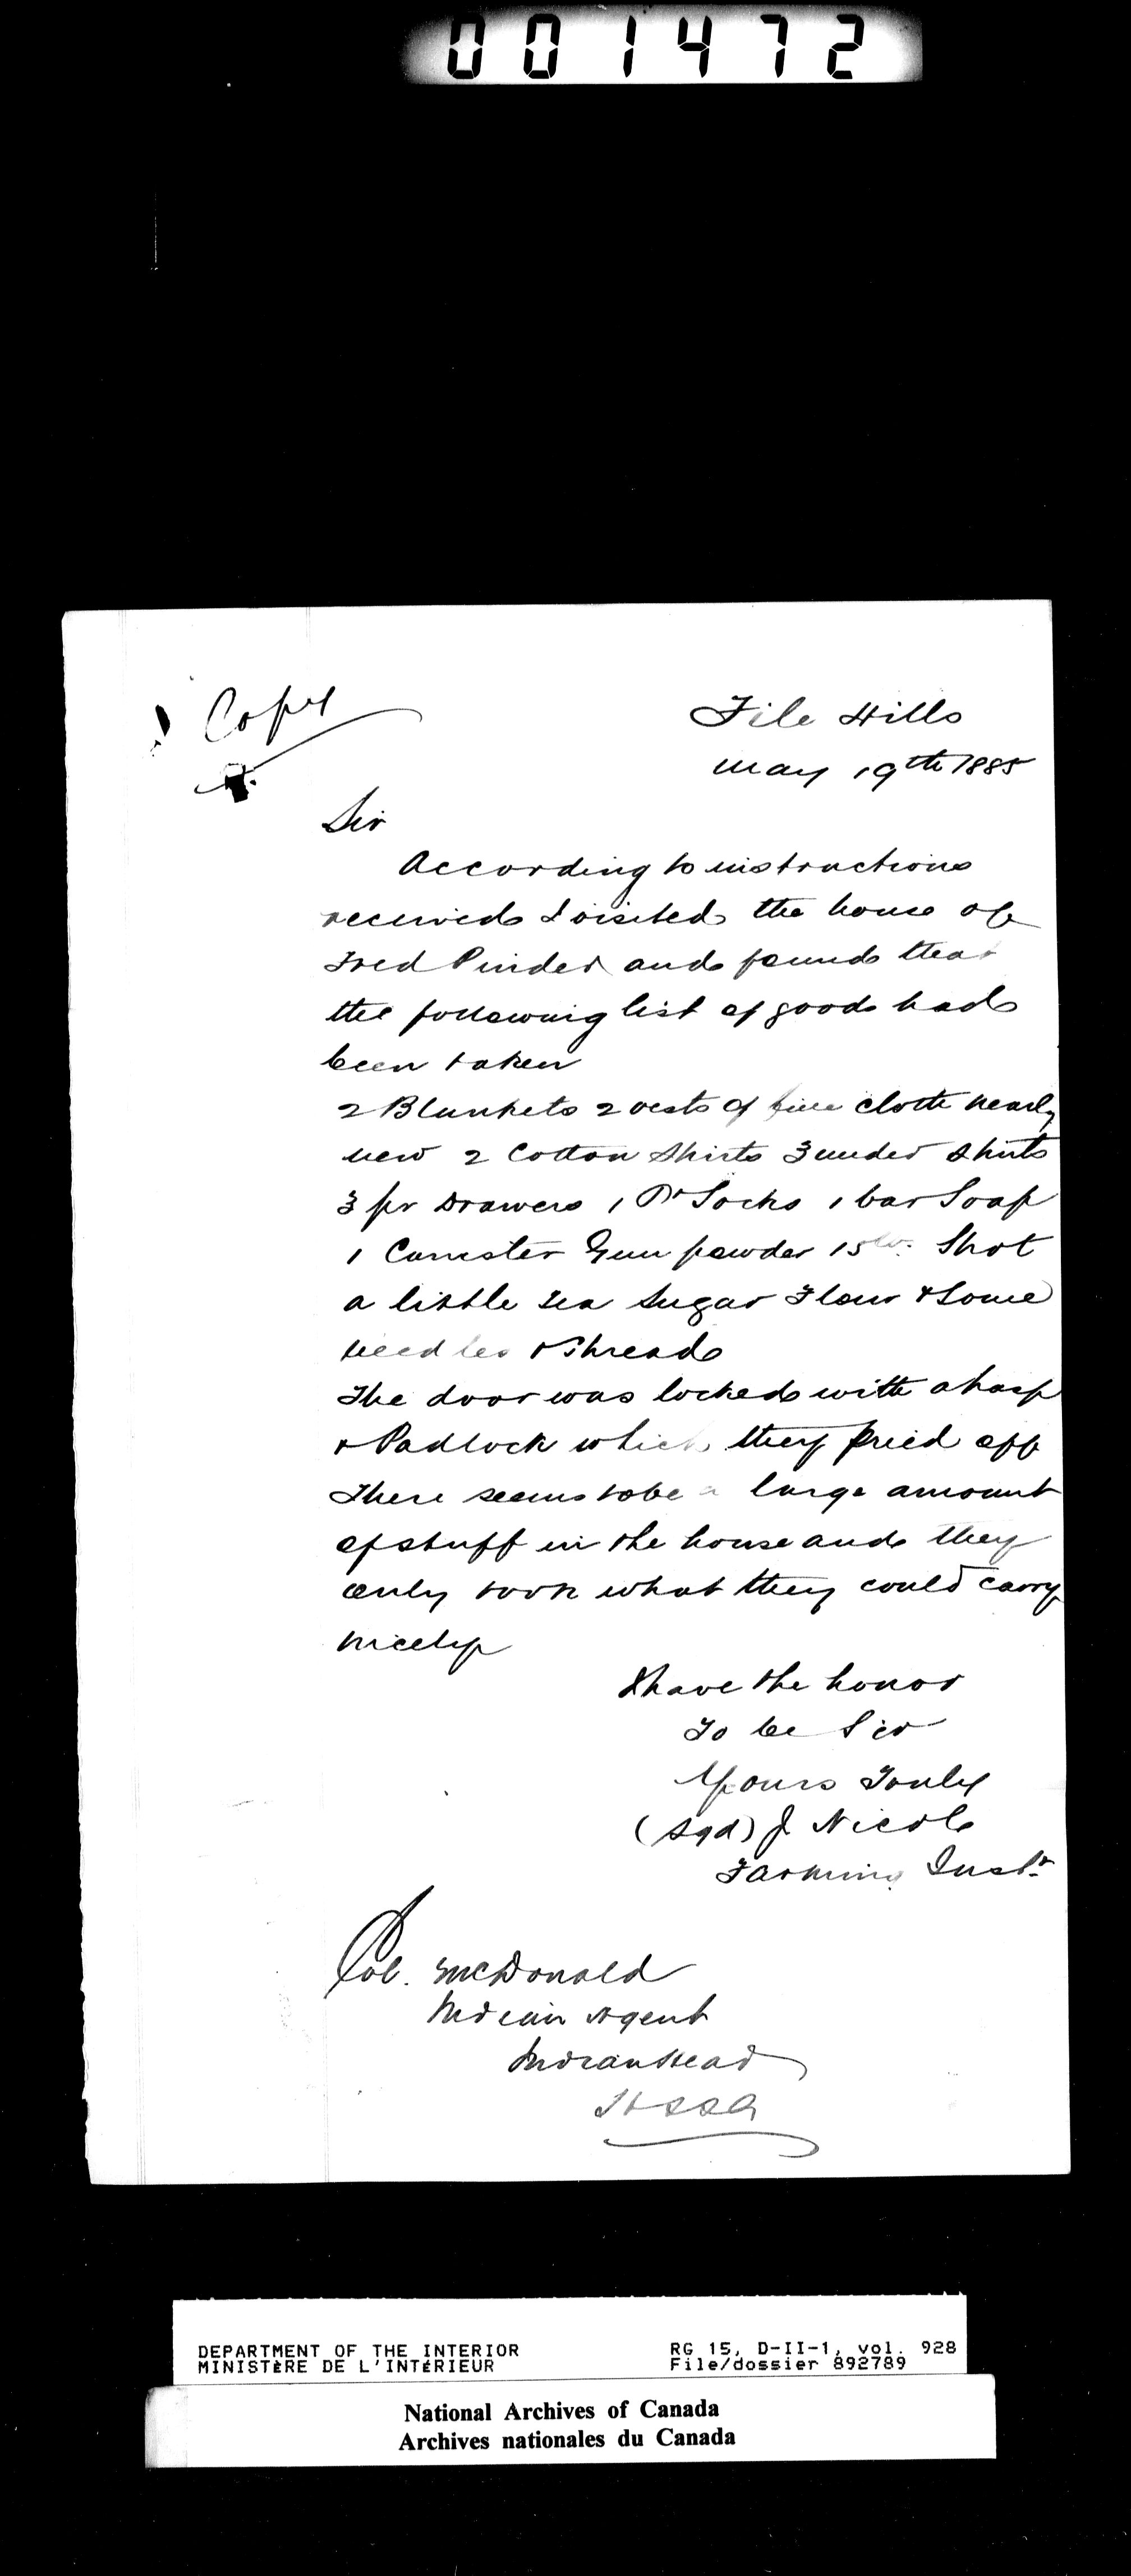 001472
Copy
File Hills
May 19th 1885
Sir
According to instructions
received I visited the house of
Fred Pinder and found that
the following list of goods had
been taken
2 Blankets 2 vests of fine cloth nearly
new 2 Cotton Shirts 3 under Shirts
3 pr Drawers 1 Pr Socks 1 bar Soap
1 Canister Gun powder 15 lb. Shot
a little Tea Sugar Flour & Some
needles & Thread
The door was locked with a hasp
& Padlock which they pried off
There seems to be a large amount
of stuff in the house and they
only took what they could carry
nicely
I have the honor
To be Sir
Yours Truly
(Sgd) J Nicol
Farming Instr.
Col. McDonald
Indian Agent
Indian Head
Assa
DEPARTMENT OF THE INTERIOR
MINISTÈRE DE L'INTÉRIEUR
RG 15, D-II-1, vol. 928
File/dossier 892789
National Archives of Canada
Archives nationales du Canada